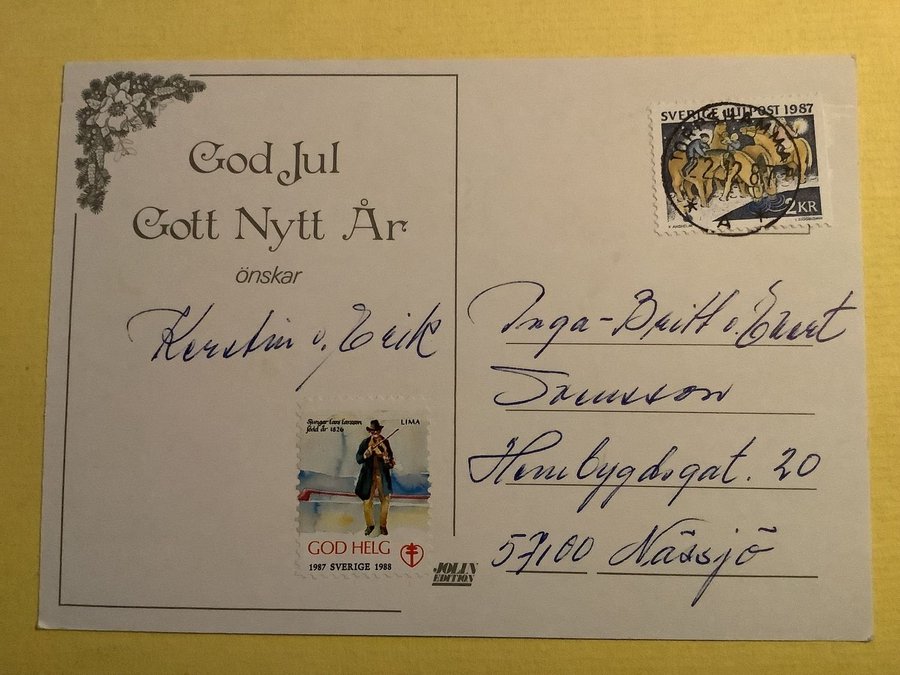 God Jul
Gott Nytt År
önskar
Kerstin o. Erik
Sjungar Lars Larsson
född år 1826
LIMA
GOD HELG
1987 SVERIGE 1988
JOLLN
EDITION
SVERIGE JULPOST 1987
2 KR
Inga-Britt o. Evert
Svensson
Hembygdsgat. 20
57100 Nässjö